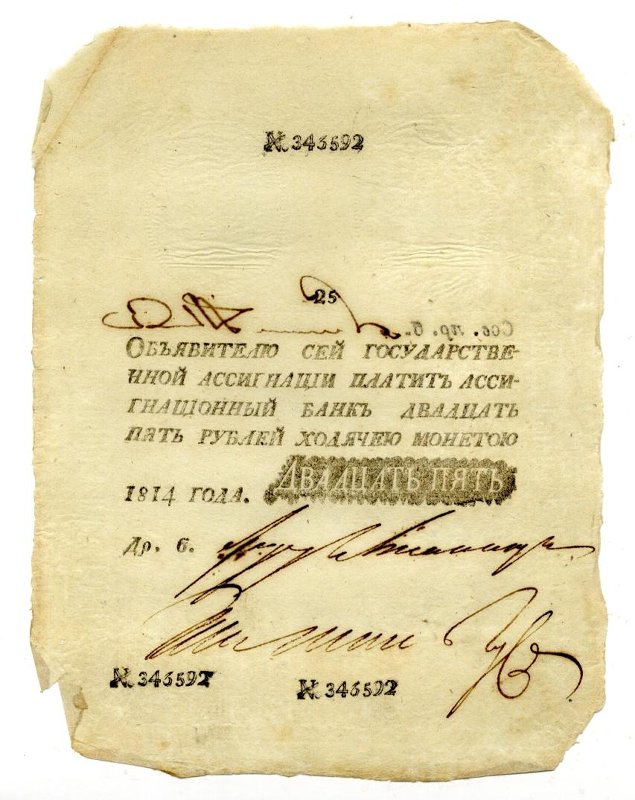 № 346592
25
Сов. пр. б.
Объявителю сей государстве-
нной ассигнаціи платитъ асси-
гнаціонный банкъ двадцать
пять рублей ходячею монетою
1814 года. Двадцать пять
Др. б.
№ 346592 № 346592